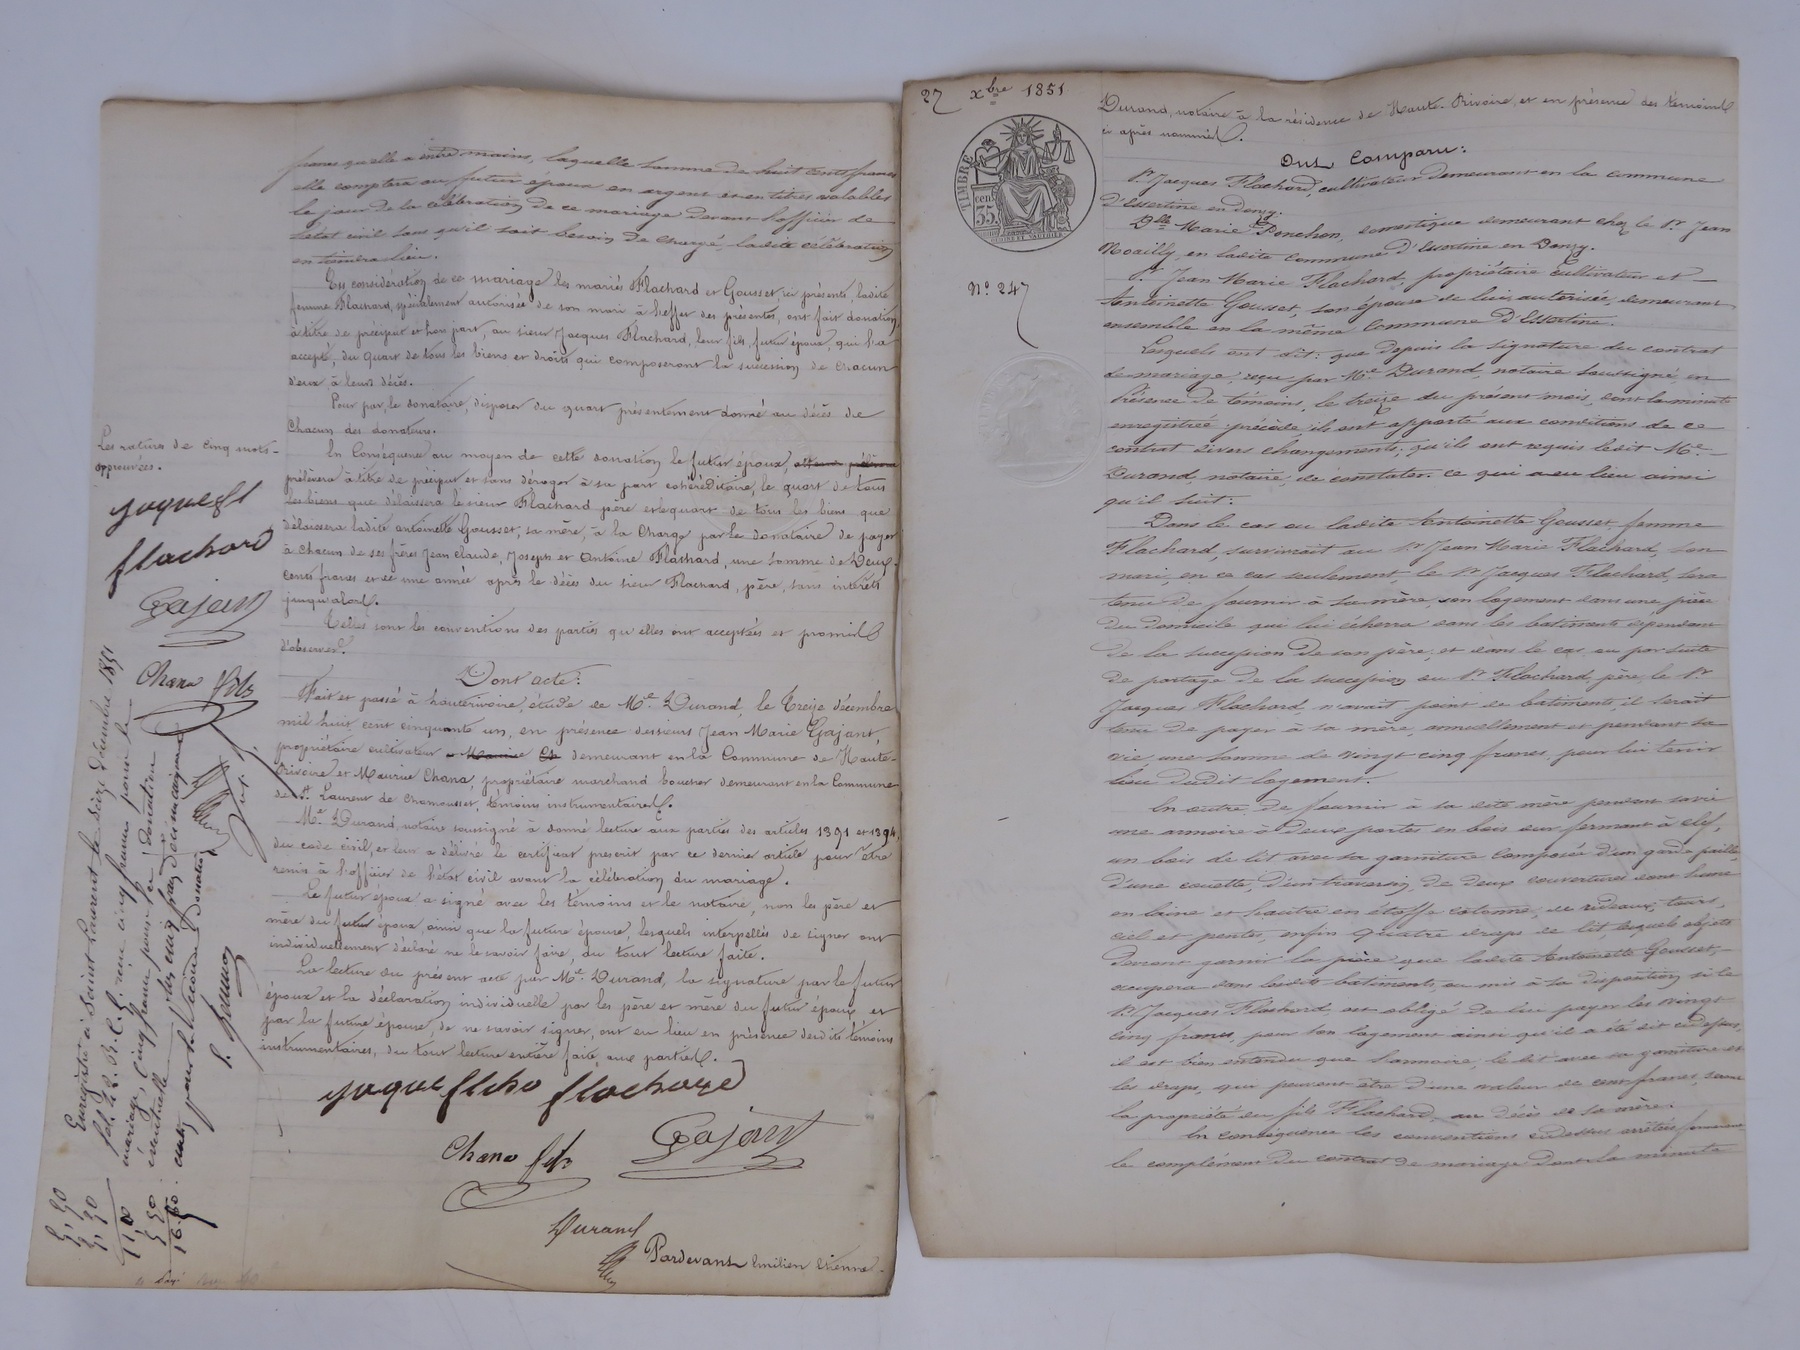 francs qu'elle a entre mains, laquelle somme de huit cents francs
elle comptera au futur époux en argent et en titres valables
le jour de la célébration de ce mariage devant l'officier de
l'état civil sans qu'il soit besoin de charge, ladite célébration
en tiendra lieu.
En considération de ce mariage les mariés Flachard et Gousset, ici présents, ladite
femme Flachard, spécialement autorisée de son mari à l'effet des présentes, ont fait donation,
à titre de préciput et hors part, au sieur Jacques Flachard, leur fils, futur époux, qui l'a
accepté, du quart de tous les biens et droits qui composeront la succession de chacun
d'eux à leurs décès.
Pour par, le donataire, disposer du quart présentement donné au décès de
chacun des donateurs.
En conséquence au moyen de cette donation le futur époux,
prélèvera à titre de préciput et sans déroger à sa part cohéréditaire, le quart de tous
les biens que délaissera le sieur Flachard père et le quart de tous les biens que
délaissera ladite antoinette Gousset, sa mère, à la charge par le donataire de payer
à chacun de ses frères Jean Claude, Joseph et Antoine Flachard, une somme de Deux
cents francs et ce une année après le décès du sieur Flachard, père, sans intérêts
jusqu'alors.
Telles sont les conventions des parties qu'elles ont acceptées et promis
d'observer.
Dont acte:
Fait et passé à hauterivoire, étude de Me Durand, le treize décembre
mil huit cent cinquante un, en présence des sieurs Jean Marie Gajant,
propriétaire cultivateur demeurant en la Commune de Haute-
Rivoire et Maurice Chana, propriétaire marchand boucher demeurant en la Commune
de St Laurent de Chamousset, témoins instrumentaires.
Me Durand, notaire soussigné a donné lecture aux parties des articles 1391 et 1394,
du code civil, et leur a délivré le certificat prescrit par ce dernier article pour être
remis à l'officier de l'état civil avant la célébration du mariage.
Le futur époux a signé avec les témoins et le notaire, non les père et
mère du futur époux, ainsi que la future épouse, lesquels interpellés de signer ont
individuellement déclaré ne le savoir faire, du tout lecture faite.
La lecture du présent acte par Me Durand, la signature par le futur
époux et la déclaration individuelle par les père et mère du futur époux et
par la future épouse, de ne savoir signer, ont eu lieu en présence desdits témoins
instrumentaires, du tout lecture entière faite aux parties.
Flachard
Chana fils Gajant
Durand
Pardevant Emilien Etienne
Les ratures de cinq mots
approuvées.
Flachard
Gajant
Chana fils
Enregistré à Saint Laurent le seize décembre 1851
reçu cinq francs pour le
mariage, cinq francs pour la donation
éventuelle
27 xbre 1851
TIMBRE
35
No 247
Durand, notaire à la résidence de Haute-Rivoire, et en présence des témoins
ci après nommés.
Ont Comparu:
Sr Jacques Flachard, cultivateur demeurant en la commune
d'Essertine en donzy.
Dlle Marie Ponchon, domestique demeurant chez le Sr Jean
Noailly, en ladite Commune d'Essertine en Donzy.
Sr Jean Marie Flachard, propriétaire cultivateur et
Antoinette Gousset, son épouse de lui autorisée, demeurant
ensemble en la même Commune d'Essertine.
Lesquels ont dit: que depuis la signature du contrat
de mariage, reçu par Me Durand, notaire soussigné, en
présence de témoins, le treize du présent mois, dont la minute
enregistrée précède, ils ont apporté aux conditions de ce
contrat divers changements, qu'ils ont requis ledit Me
Durand, notaire, de constater. ce qui a eu lieu ainsi
qu'il suit:
Dans le cas ou ladite Antoinette Gousset, femme
Flachard, survivrait au Sr Jean Marie Flachard, son
mari, en ce cas seulement, le Sr Jacques Flachard, sera
tenu de fournir à sa mère, son logement dans une pièce
du domicile qui lui écherra dans les batiments dépendant
de la succession de son père; et dans le cas, ou par suite
de partage de la succession du Sr Flachard, père, le Sr
Jacques Flachard, n'avait point de batiments, il serait
tenu de payer à sa mère, annuellement et pendant sa
vie, une somme de vingt cinq francs, pour lui tenir
lieu dudit logement.
En outre de fournir à sa dite mère pendant sa vie
une armoire à deux portes en bois dur fermant à clef,
un bois de lit avec sa garniture composée d'un garde paille,
d'une couette, d'un traversin, de deux couvertures dont l'une
en laine et l'autre en étoffe cotonne, de rideaux, tours,
ciel et pentes, enfin quatre draps de lit, lesquels objets
devront garnir la pièce que ladite Antoinette Gousset,
occupera dans lesdits batiments, ou mis à sa disposition si le
Sr Jacques Flachard, est obligé de lui payer les vingt
cinq francs, pour son logement ainsi qu'il a été dit ci dessus,
il est bien entendu que l'armoire, le lit avec sa garniture et
les draps, qui peuvent être d'une valeur de cent francs, sont
la propriété du fils Flachard, au décès de sa mère.
En conséquence les conventions ci dessus arrêtées formeront
le complément du contrat de mariage dont la minute